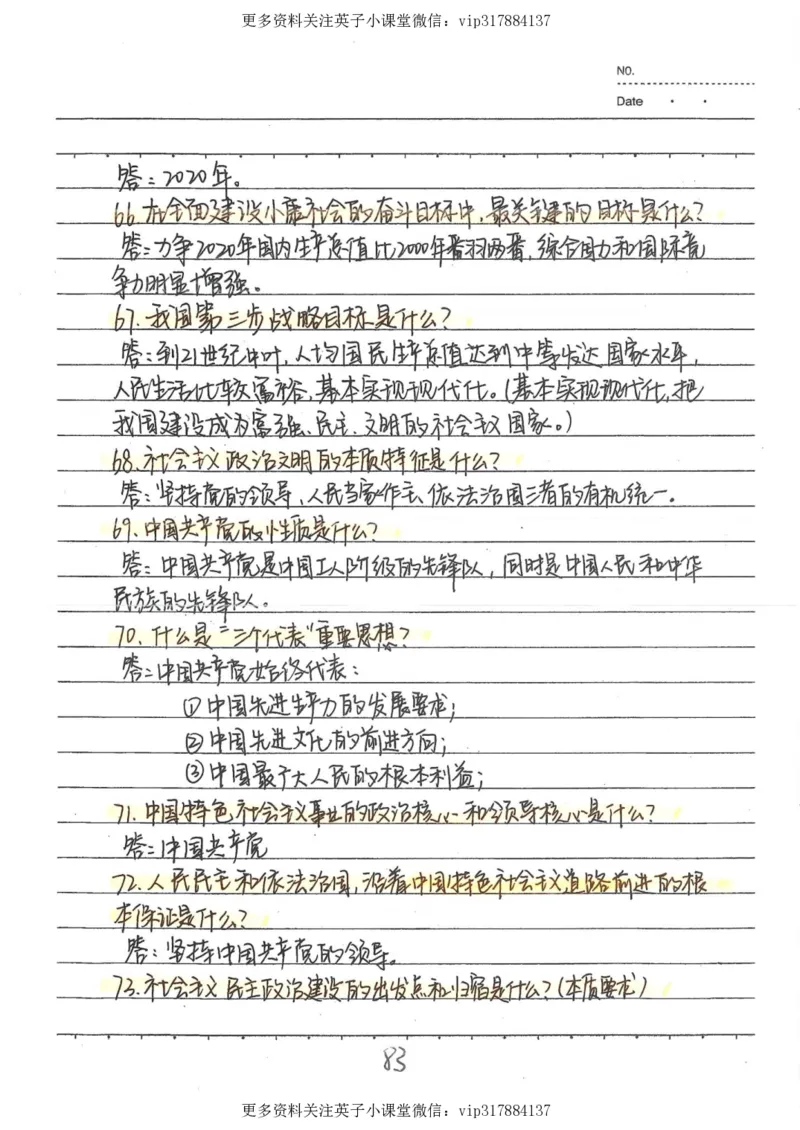 更多资料关注英子小课堂微信：vip317884137
NO.
Date
答：2020年。
66.在全面建设小康社会的奋斗目标中，最关键的目标是什么？
答：力争2020年国内生产总值比2000年番羽两番，综合国力和国际竞
争力明显增强。
67.我国第三步战略目标是什么？
答：到21世纪中叶，人均国民生产总值达到中等发达国家水平，
人民生活比较富裕，基本实现现代化。（基本实现现代化，把
我国建设成为富强、民主、文明的社会主义国家。）
68.社会主义政治文明的本质特征是什么？
答：坚持党的领导、人民当家作主、依法治国三者的有机统一。
69.中国共产党的性质是什么？
答：中国共产党是中国工人阶级的先锋队，同时是中国人民和中华
民族的先锋队。
70.什么是“三个代表”重要思想？
答：中国共产党始终代表：
①中国先进生产力的发展要求；
②中国先进文化的前进方向；
③中国最广大人民的根本利益；
71.中国特色社会主义事业的政治核心和领导核心是什么？
答：中国共产党
72.人民民主和依法治国，沿着中国特色社会主义道路前进的根
本保证是什么？
答：坚持中国共产党的领导。
73.社会主义民主政治建设的出发点和归宿是什么？（本质要求）
83
更多资料关注英子小课堂微信：vip317884137